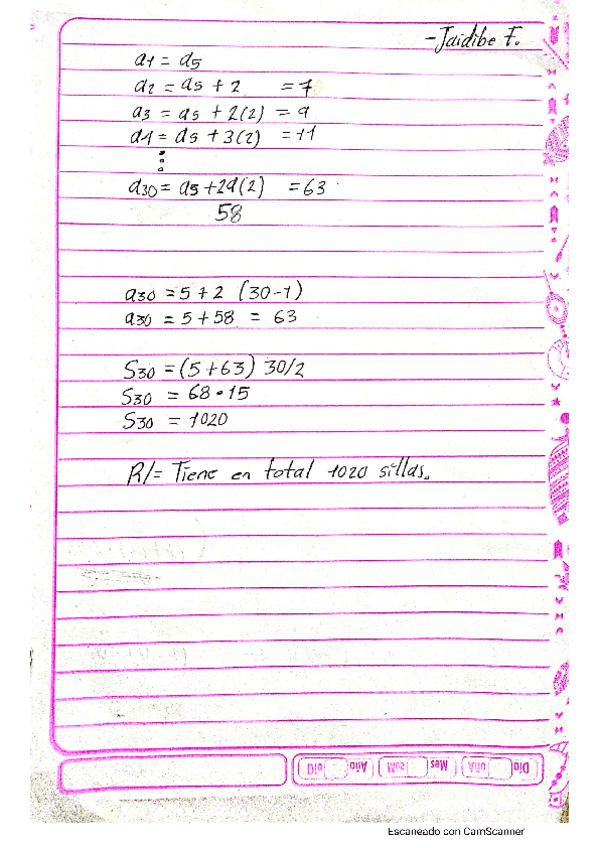 -Jaidibe F.
a1 = a5
a2 = a5 + 2 = 7
a3 = a5 + 2(2) = 9
a4 = a5 + 3(2) = 11
a30 = a5 + 29(2) = 63
58
a30 = 5 + 2 (30-1)
a30 = 5 + 58 = 63
S30 = (5+63) 30/2
S30 = 68 • 15
S30 = 1020
R/= Tiene en total 1020 sillas.
Día Uña Mes Mes Año Día
Escaneado con CamScanner